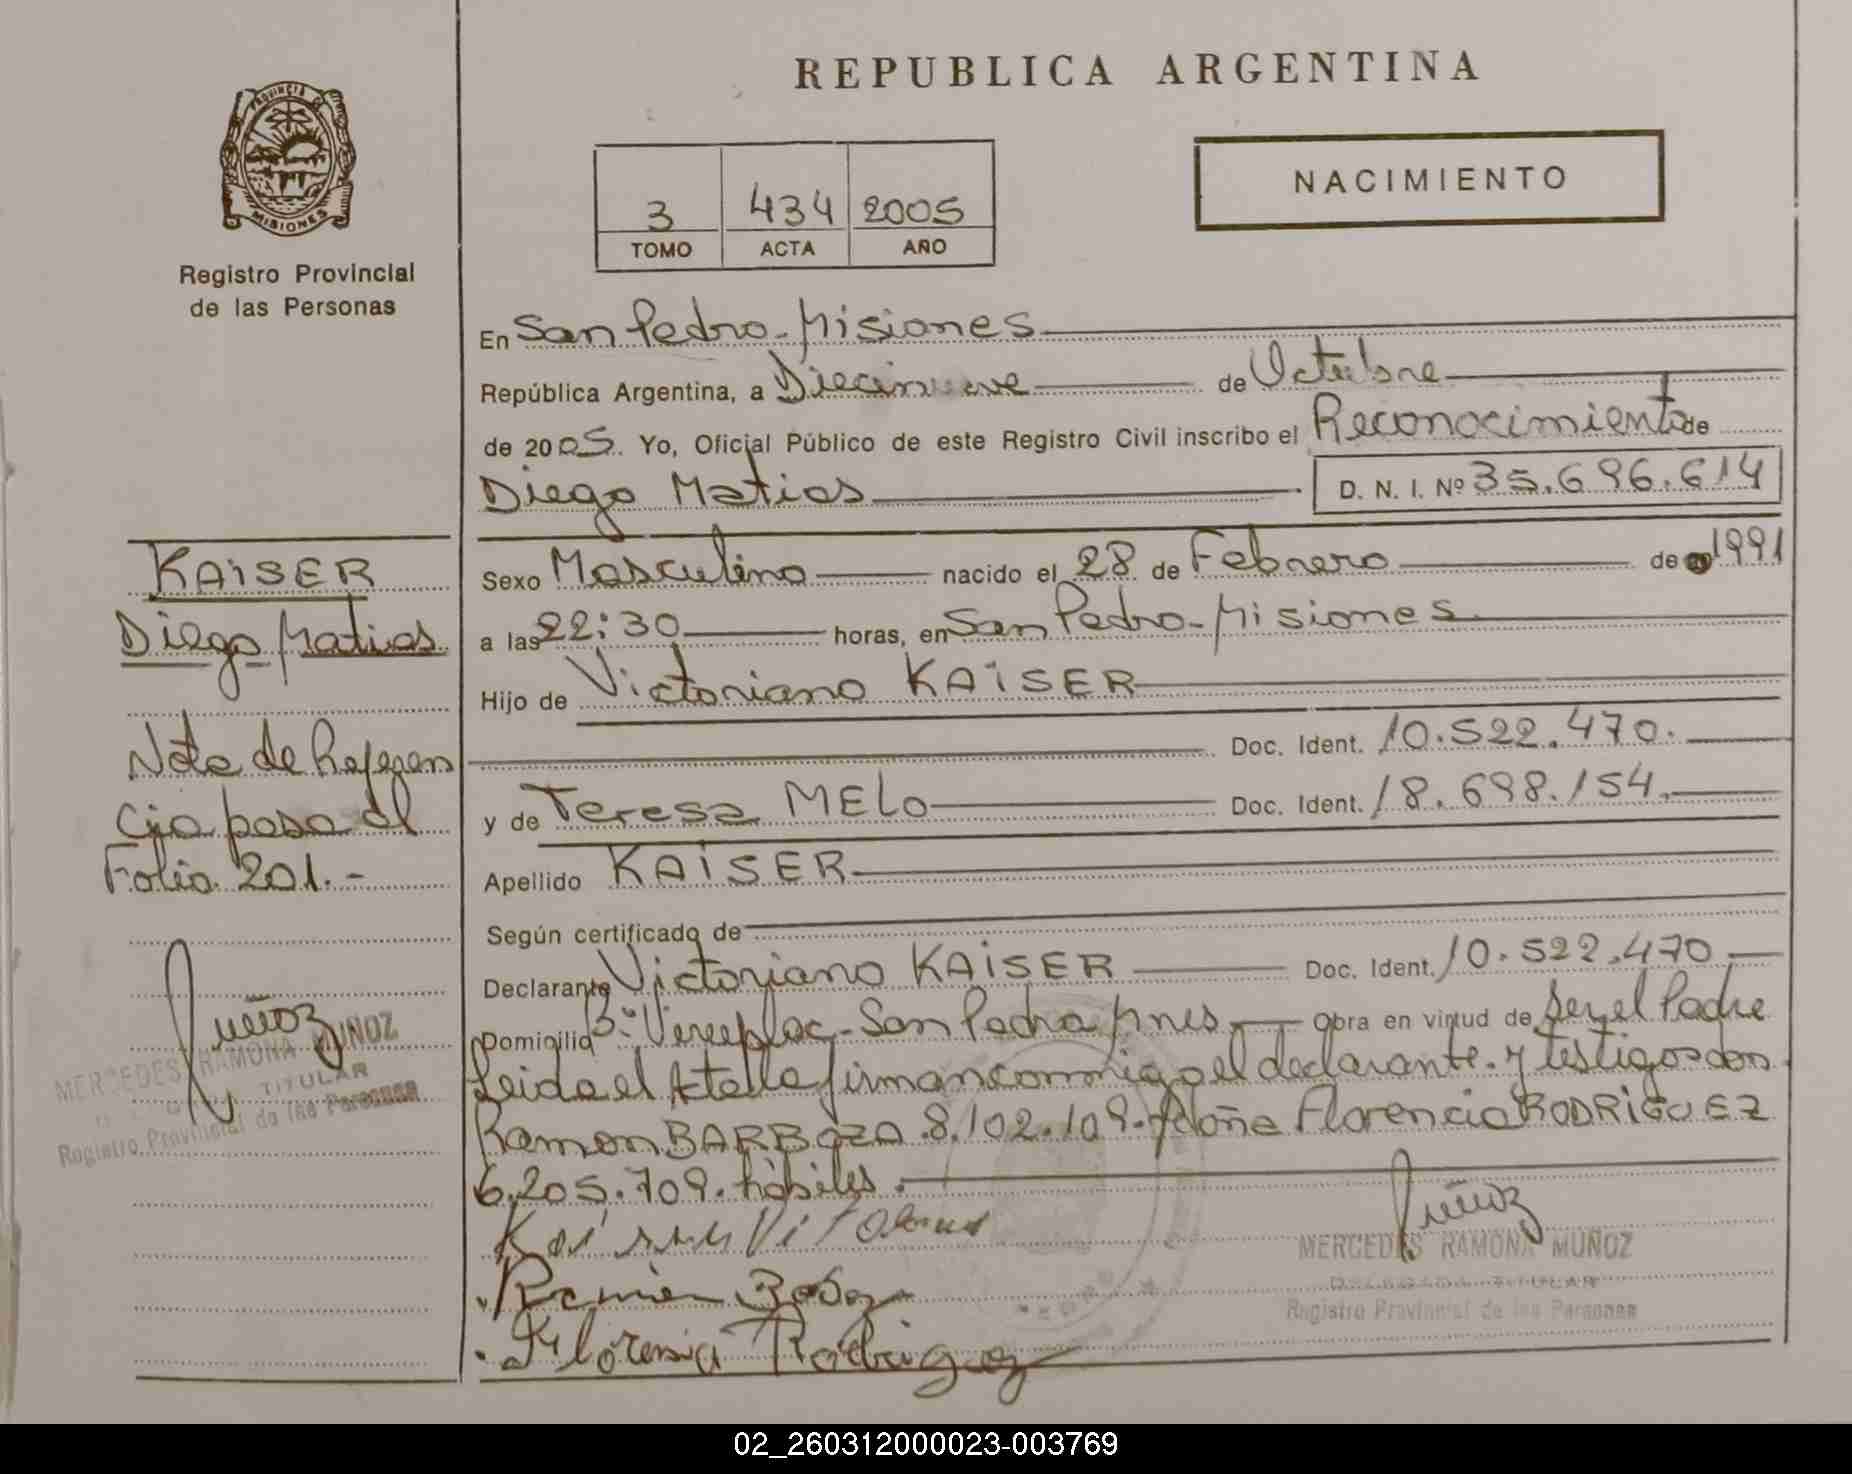 REPUBLICA ARGENTINA
PROVINCIA DE
MISIONES
Registro Provincial
de las Personas
NACIMIENTO
3 434 2005
TOMO ACTA AÑO
En San Pedro - Misiones
República Argentina, a Diecinueve de Octubre
de 2005. Yo, Oficial Público de este Registro Civil inscribo el Reconocimiento de
Diego Matias D. N. I. Nº 35.696.614
KAISER
Diego Matias
Nota de Referen
cia pasa al
Folio 201.-
Muñoz
MERCEDES RAMONA MUÑOZ
TITULAR
Registro Provincial de las Personas
Sexo Masculino nacido el 28 de Febrero de 1991
a las 22:30 horas, en San Pedro - Misiones
Hijo de Victoriano KAISER
Doc. Ident. 10.522.470.
y de Teresa MELO Doc. Ident. 18.698.154.
Apellido KAISER
Según certificado de
Declarante Victoriano KAISER Doc. Ident. 10.522.470
Domicilio Bº San Pedro Mnes obra en virtud de Ser el Padre
Leida el Acta la firman conmigo el declarante. y testigos don
Ramon BARBOZA 8.102.109. y doña Florencia RODRIGUEZ
6.205.709. hábiles.
Ramon
Florensia Rodriguez
Muñoz
MERCEDES RAMONA MUÑOZ
DELEGADA TITULAR
Registro Provincial de las Personas
02_260312000023-003769